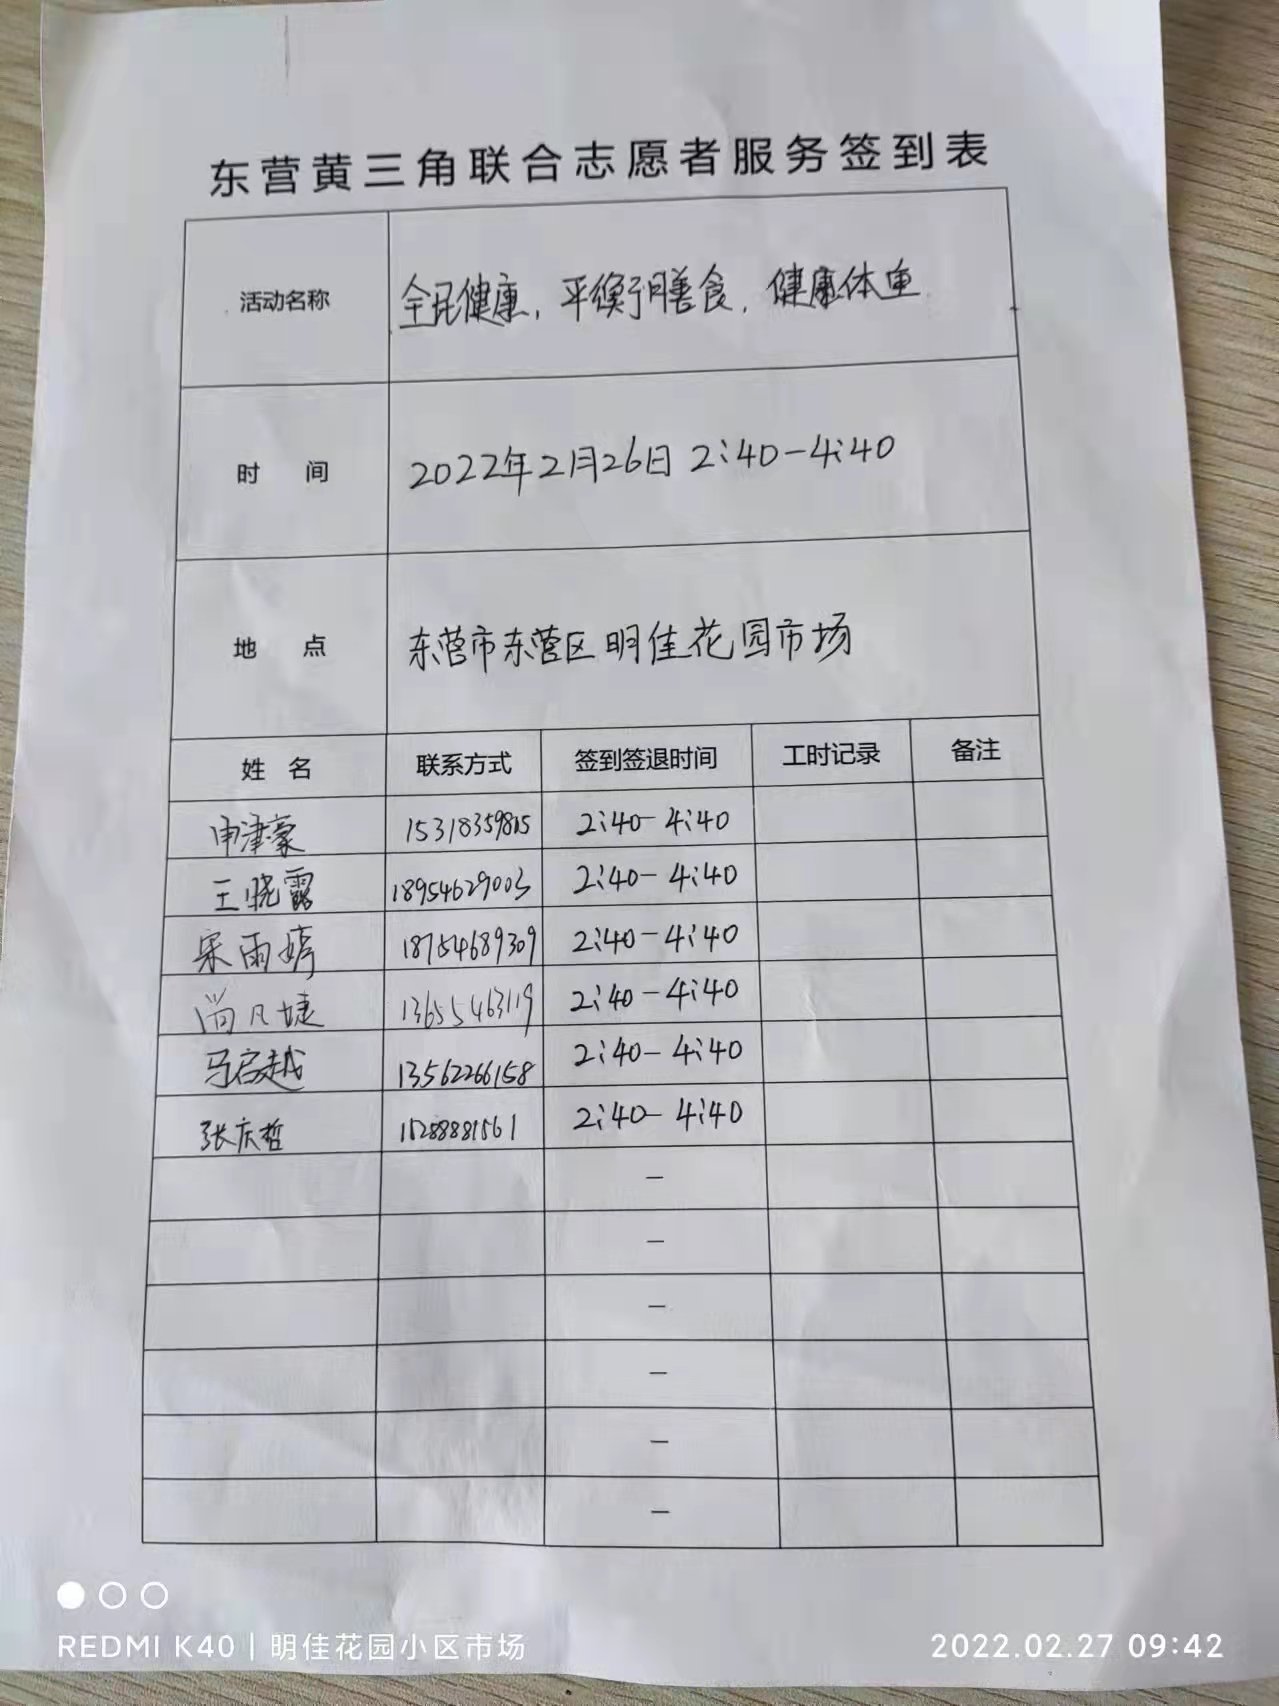 东营黄三角联合志愿者服务签到表
活动名称 全民健康，平衡膳食，健康体重
时 间 2022年2月26日 2:40-4:40
地 点 东营市东营区明佳花园市场
姓 名 联系方式 签到签退时间 工时记录 备注
申津豪 15318359815 2:40-4:40
王晓露 18954629003 2:40-4:40
宋雨婷 18754689309 2:40-4:40
尚凡婕 13655463119 2:40-4:40
马启越 13562266158 2:40-4:40
张庆哲 1528881561 2:40-4:40
—
—
—
—
—
—
REDMI K40 | 明佳花园小区市场 2022.02.27 09:42